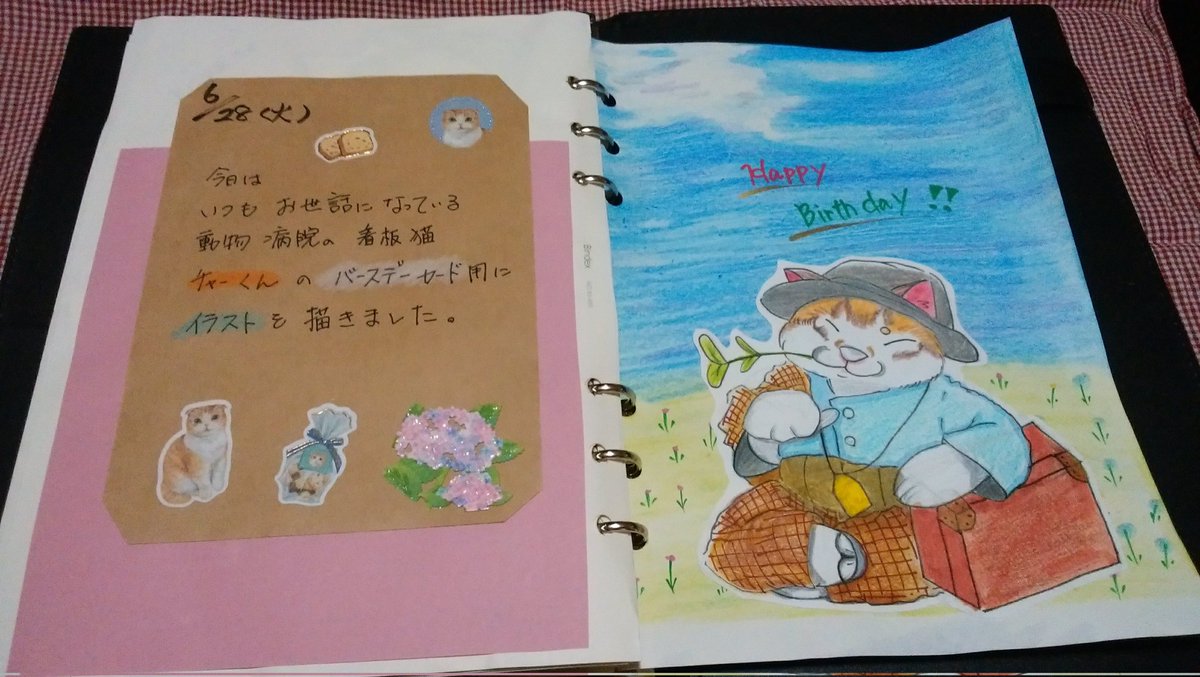 6/28(火)
今日は
いつも お世話になっている
動物病院の 看板猫
チャーくん の バースデーカード用に
イラストを 描きました。
Happy
Birthday !!